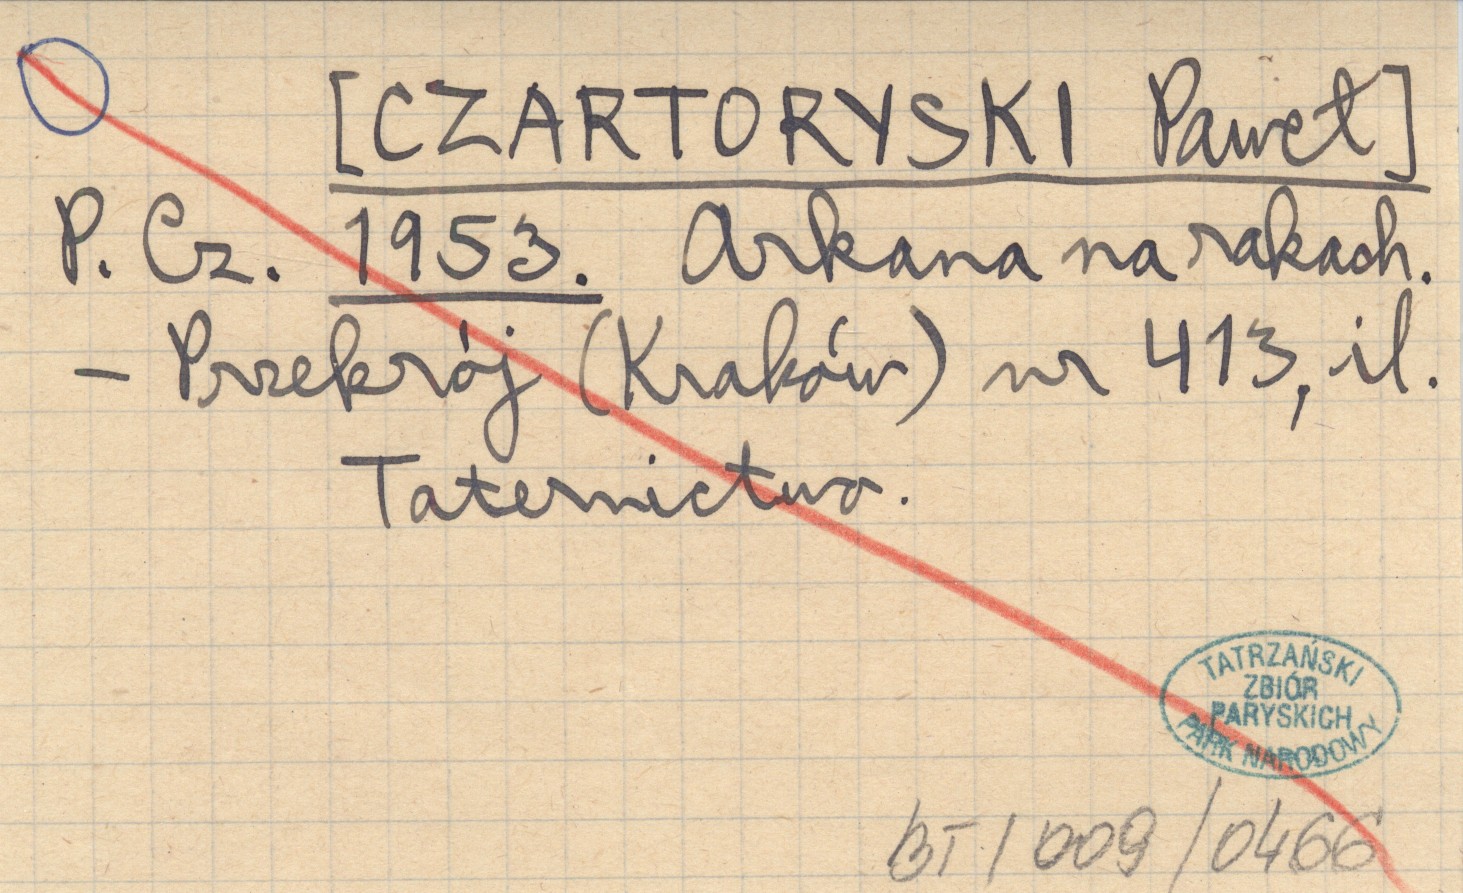 [CZARTORYSKI Paweł]
P. Cz. 1953. Arkana na rakach.
– Przekrój (Kraków) nr 413, il.
Taternictwo.
TATRZAŃSKI
ZBIÓR
PARYSKICH
PARK NARODOWY
BT/009/0466